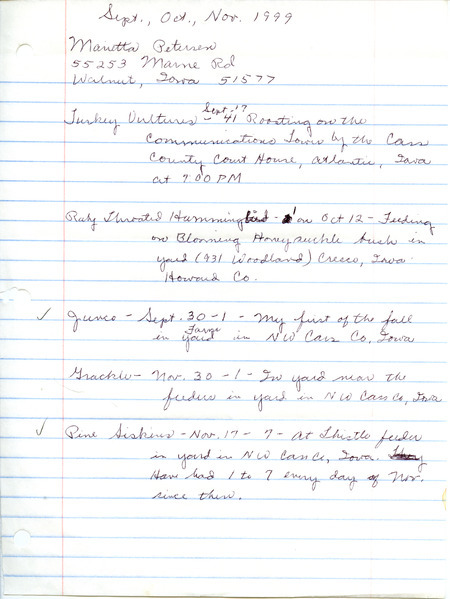 Sept., Oct., Nov. 1999
Marietta Petersen
55253 Marne Rd
Walnut, Iowa 51577
Turkey Vultures - Sept. 17 41 Roosting on the
communications tower by the Cass
County Court House, Atlantic, Iowa
at 7:00 PM
Ruby Throated Hummingbird - 1 on Oct 12 - Feeding
on Blooming Honeysuckle bush in
yard (931 Woodland) Cresco, Iowa
Howard Co.
✓ Junco - Sept. 30 - 1 - My first of the fall
in farm yard in NW Cass Co, Iowa
Grackle - Nov. 30 - 1 - In yard near the
feeders in yard in NW Cass Co, Iowa
✓ Pine Siskins - Nov. 17 - 7 - At thistle feeder
in yard in NW Cass Co, Iowa.
Have had 1 to 7 every day of Nov.
since then.